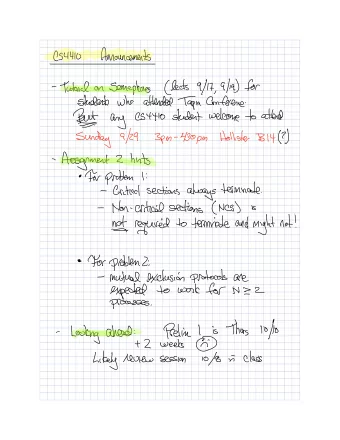 CS4410 Announcements
- Tutorial on Semaphores (lects 9/17, 9/19) for
students who attended Tapia Conference.
But any CS4410 student welcome to attend
Sunday 9/29 3pm-4:30pm Hollister B14(?)
- Assignment 2 hints
• For problem 1:
- Critical sections always terminate.
- Non-critical sections (NCS) is
not required to terminate and might not!
• For problem 2
- mutual exclusion protocols are
expected to work for N ≥ 2
processes.
- Looking ahead: Prelim 1 is Thurs 10/10
+2 weeks
Likely review session 10/8 in class